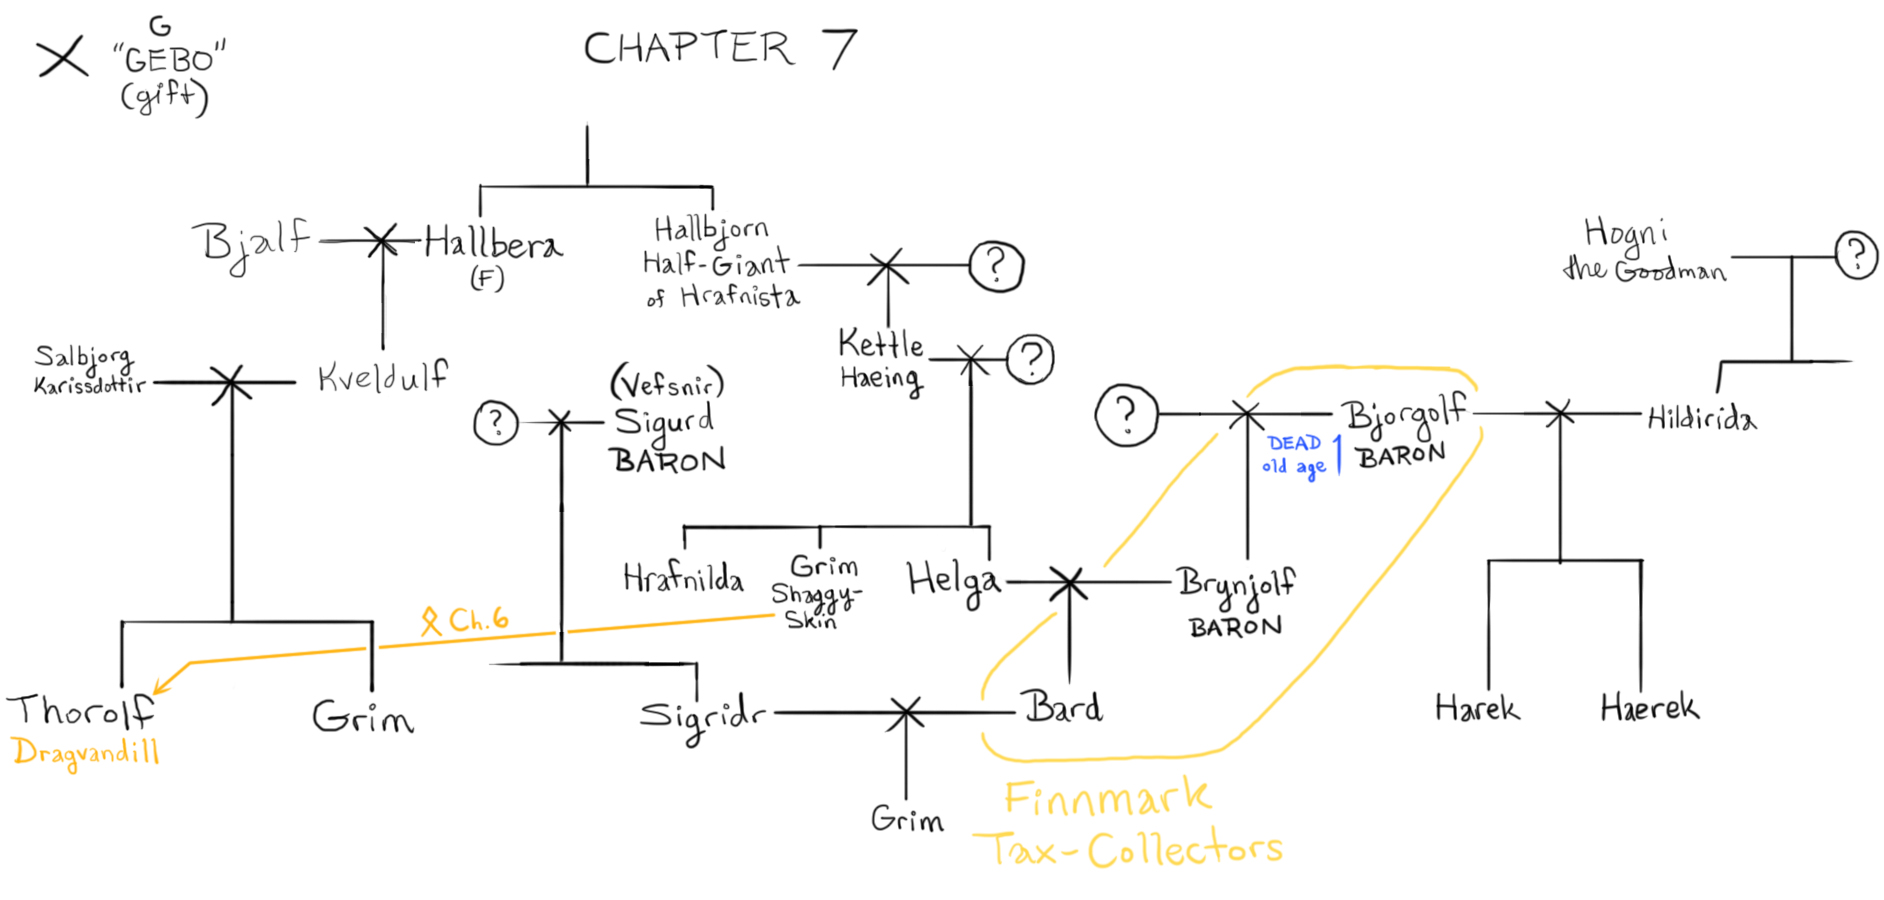 G
"GEBO"
(gift)
CHAPTER 7
Bjalf
Hallbera
(F)
Hallbjorn
Half-Giant
of Hrafnista
?
Hogni
the Goodman
?
Salbjorg
Karissdottir
Kveldulf
?
(Vefsnir)
Sigurd
BARON
Kettle
Haeing
?
?
DEAD
old age
Bjorgolf
BARON
Hildirida
Hrafnilda
Grim
Shaggy-
Skin
Helga
Brynjolf
BARON
ᛟ Ch.6
Thorolf
Dragvandill
Grim
Sigridr
Bard
Harek
Haerek
Grim
Finnmark
Tax-Collectors